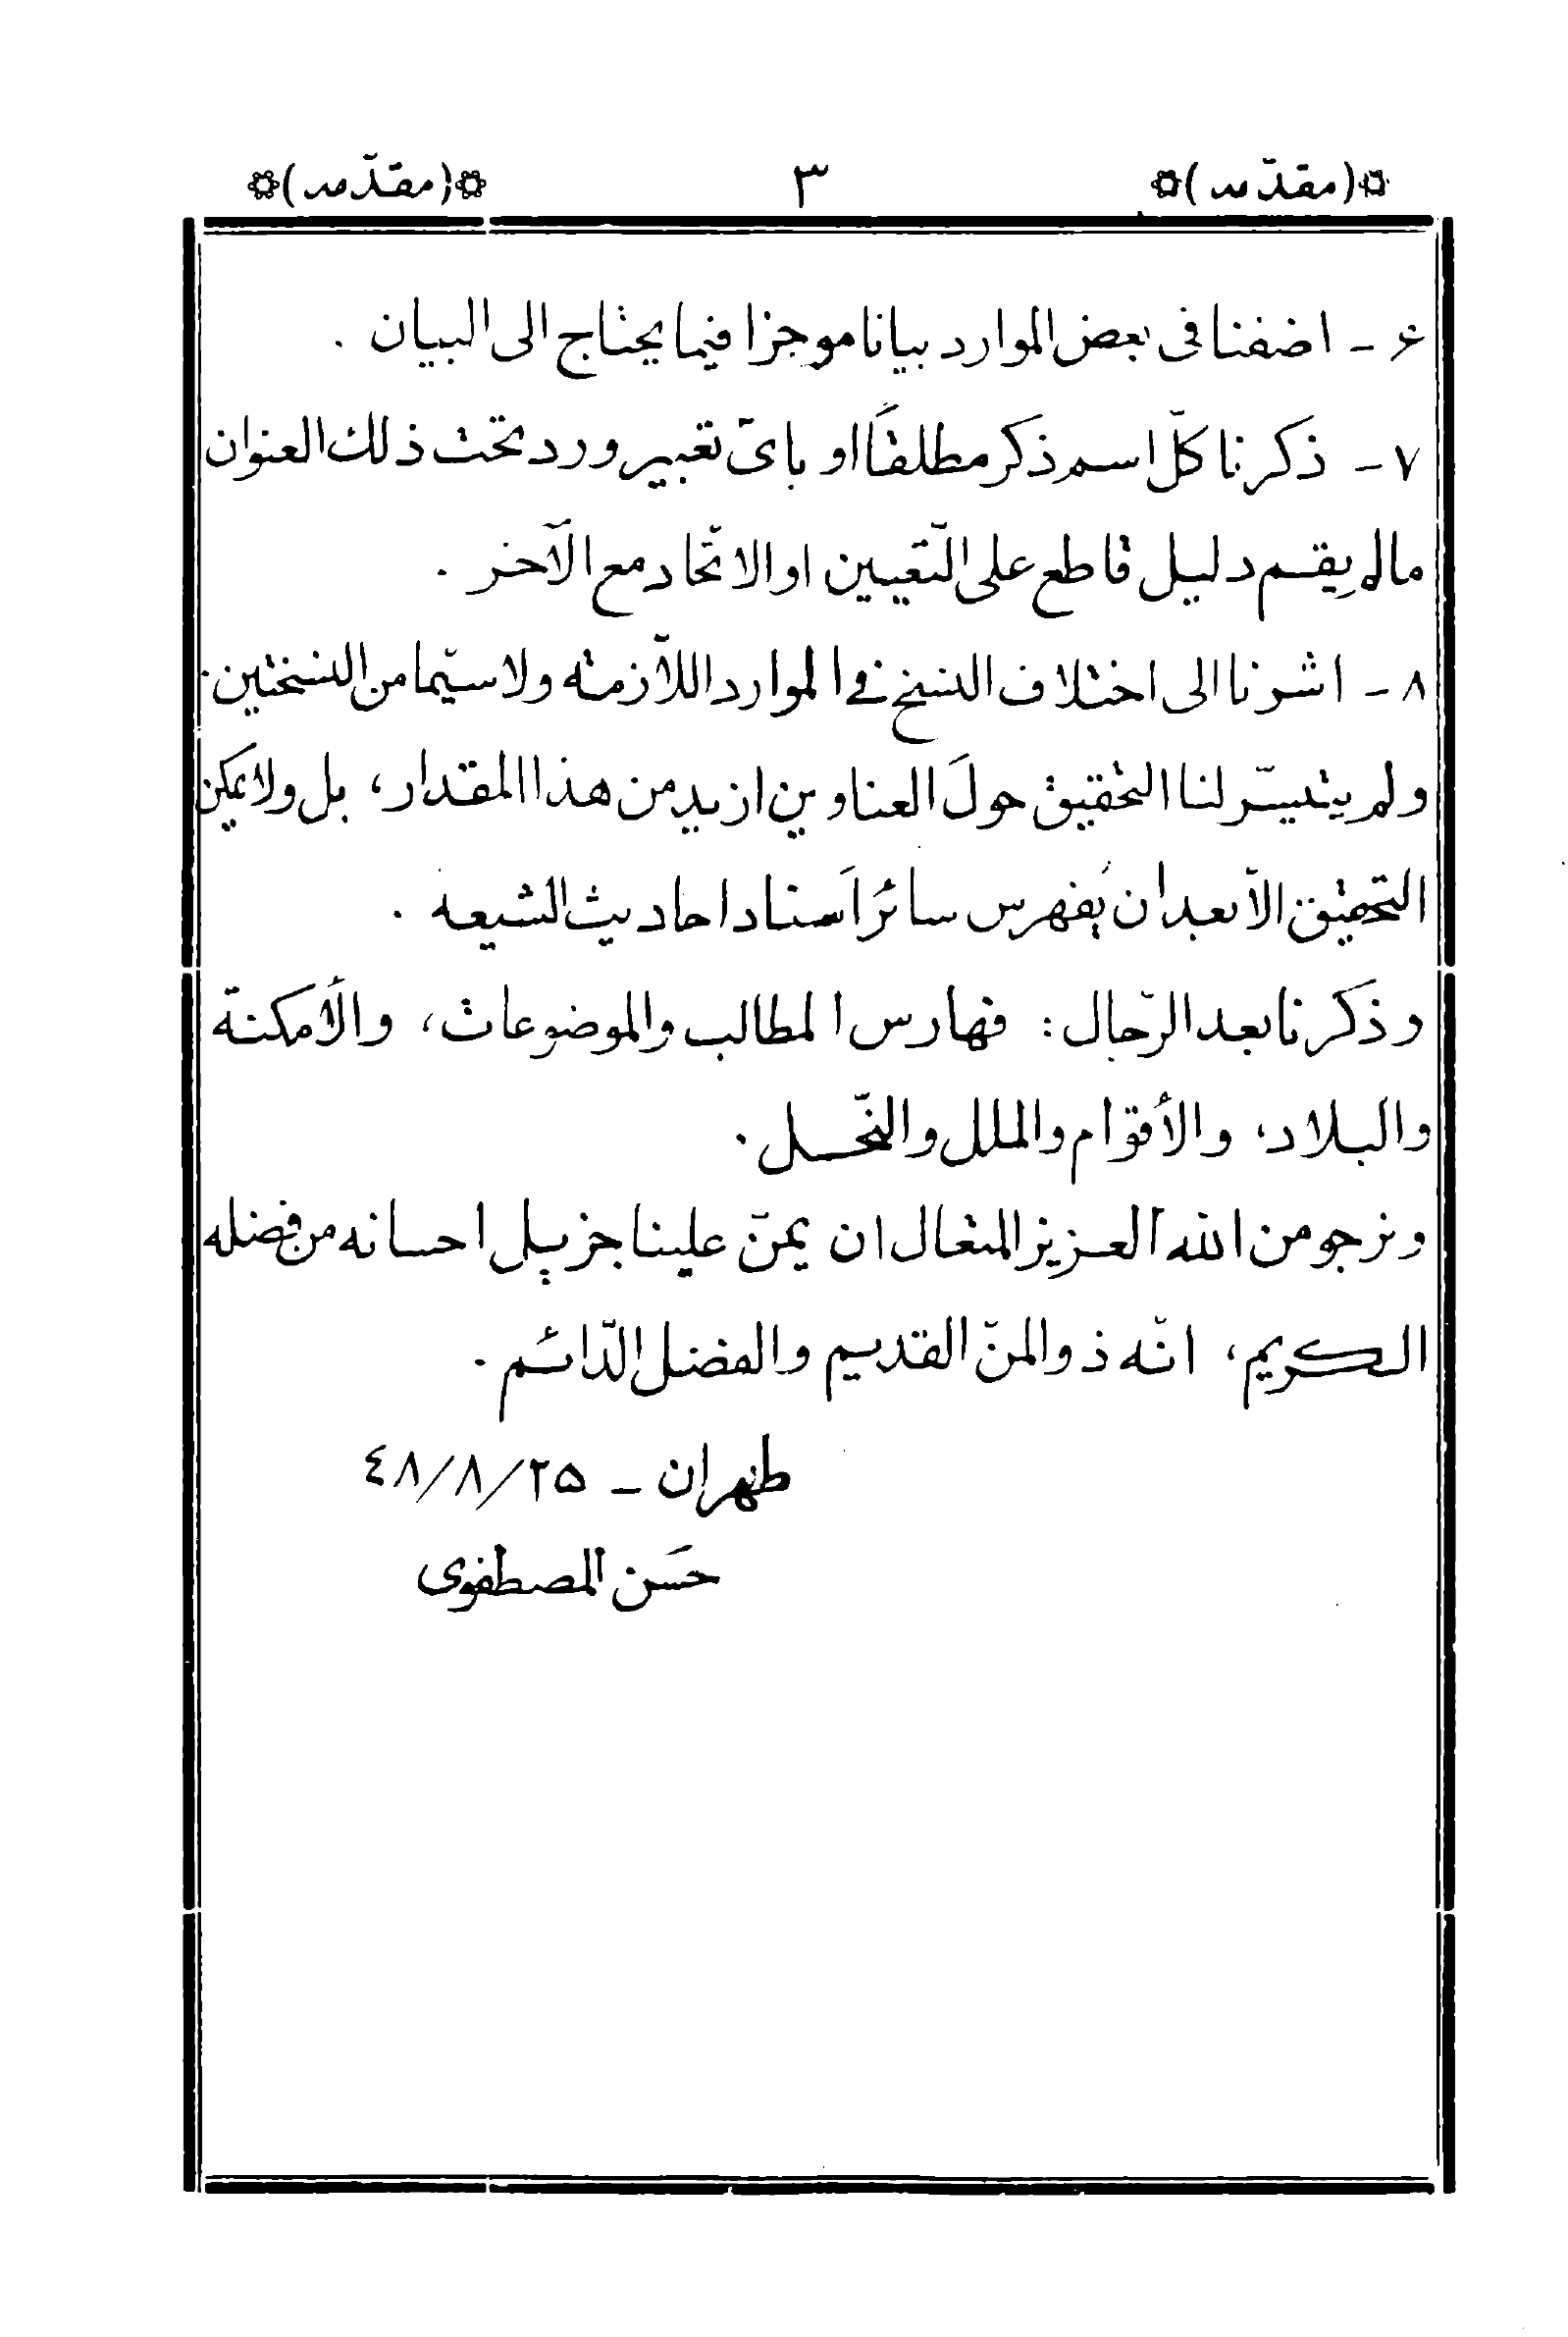 (مقدّمه) ٣ (مقدّمه)
۶ - اضفنا فى بعض الموارد بيانا موجزا فيما يحتاج الى البيان .
٧ - ذكرنا كلّ اسم ذكر مطلقاً او باىّ تعبير ورد تحت ذلك العنوان
مالم يقم دليل قاطع على التّعيين او الاتّحاد مع الآخر .
٨ - اشرنا الى اختلاف النسخ فى الموارد اللاّزمة ولا سيّما من النسختين .
ولم يتيسّر لنا التحقيق حولَ العناوين ازيد من هذا المقدار، بل ولا يمكن
التحقيق الاّ بعد ان يُفهرس سائر اَسناد احاديث الشيعه .
وذكرنا بعد الرّجال : فهارس المطالب والموضوعات، والأمكنة
والبلاد، والأقوام والملل والنّحل .
ونرجو من الله العزيز المتعال ان يمنّ علينا جزيل احسانه من فضله
الكريم، انّه ذو المنّ القديم والفضل الدّائم .
طهران - ٤٨/٨/٢۵
حسَن المصطفوى